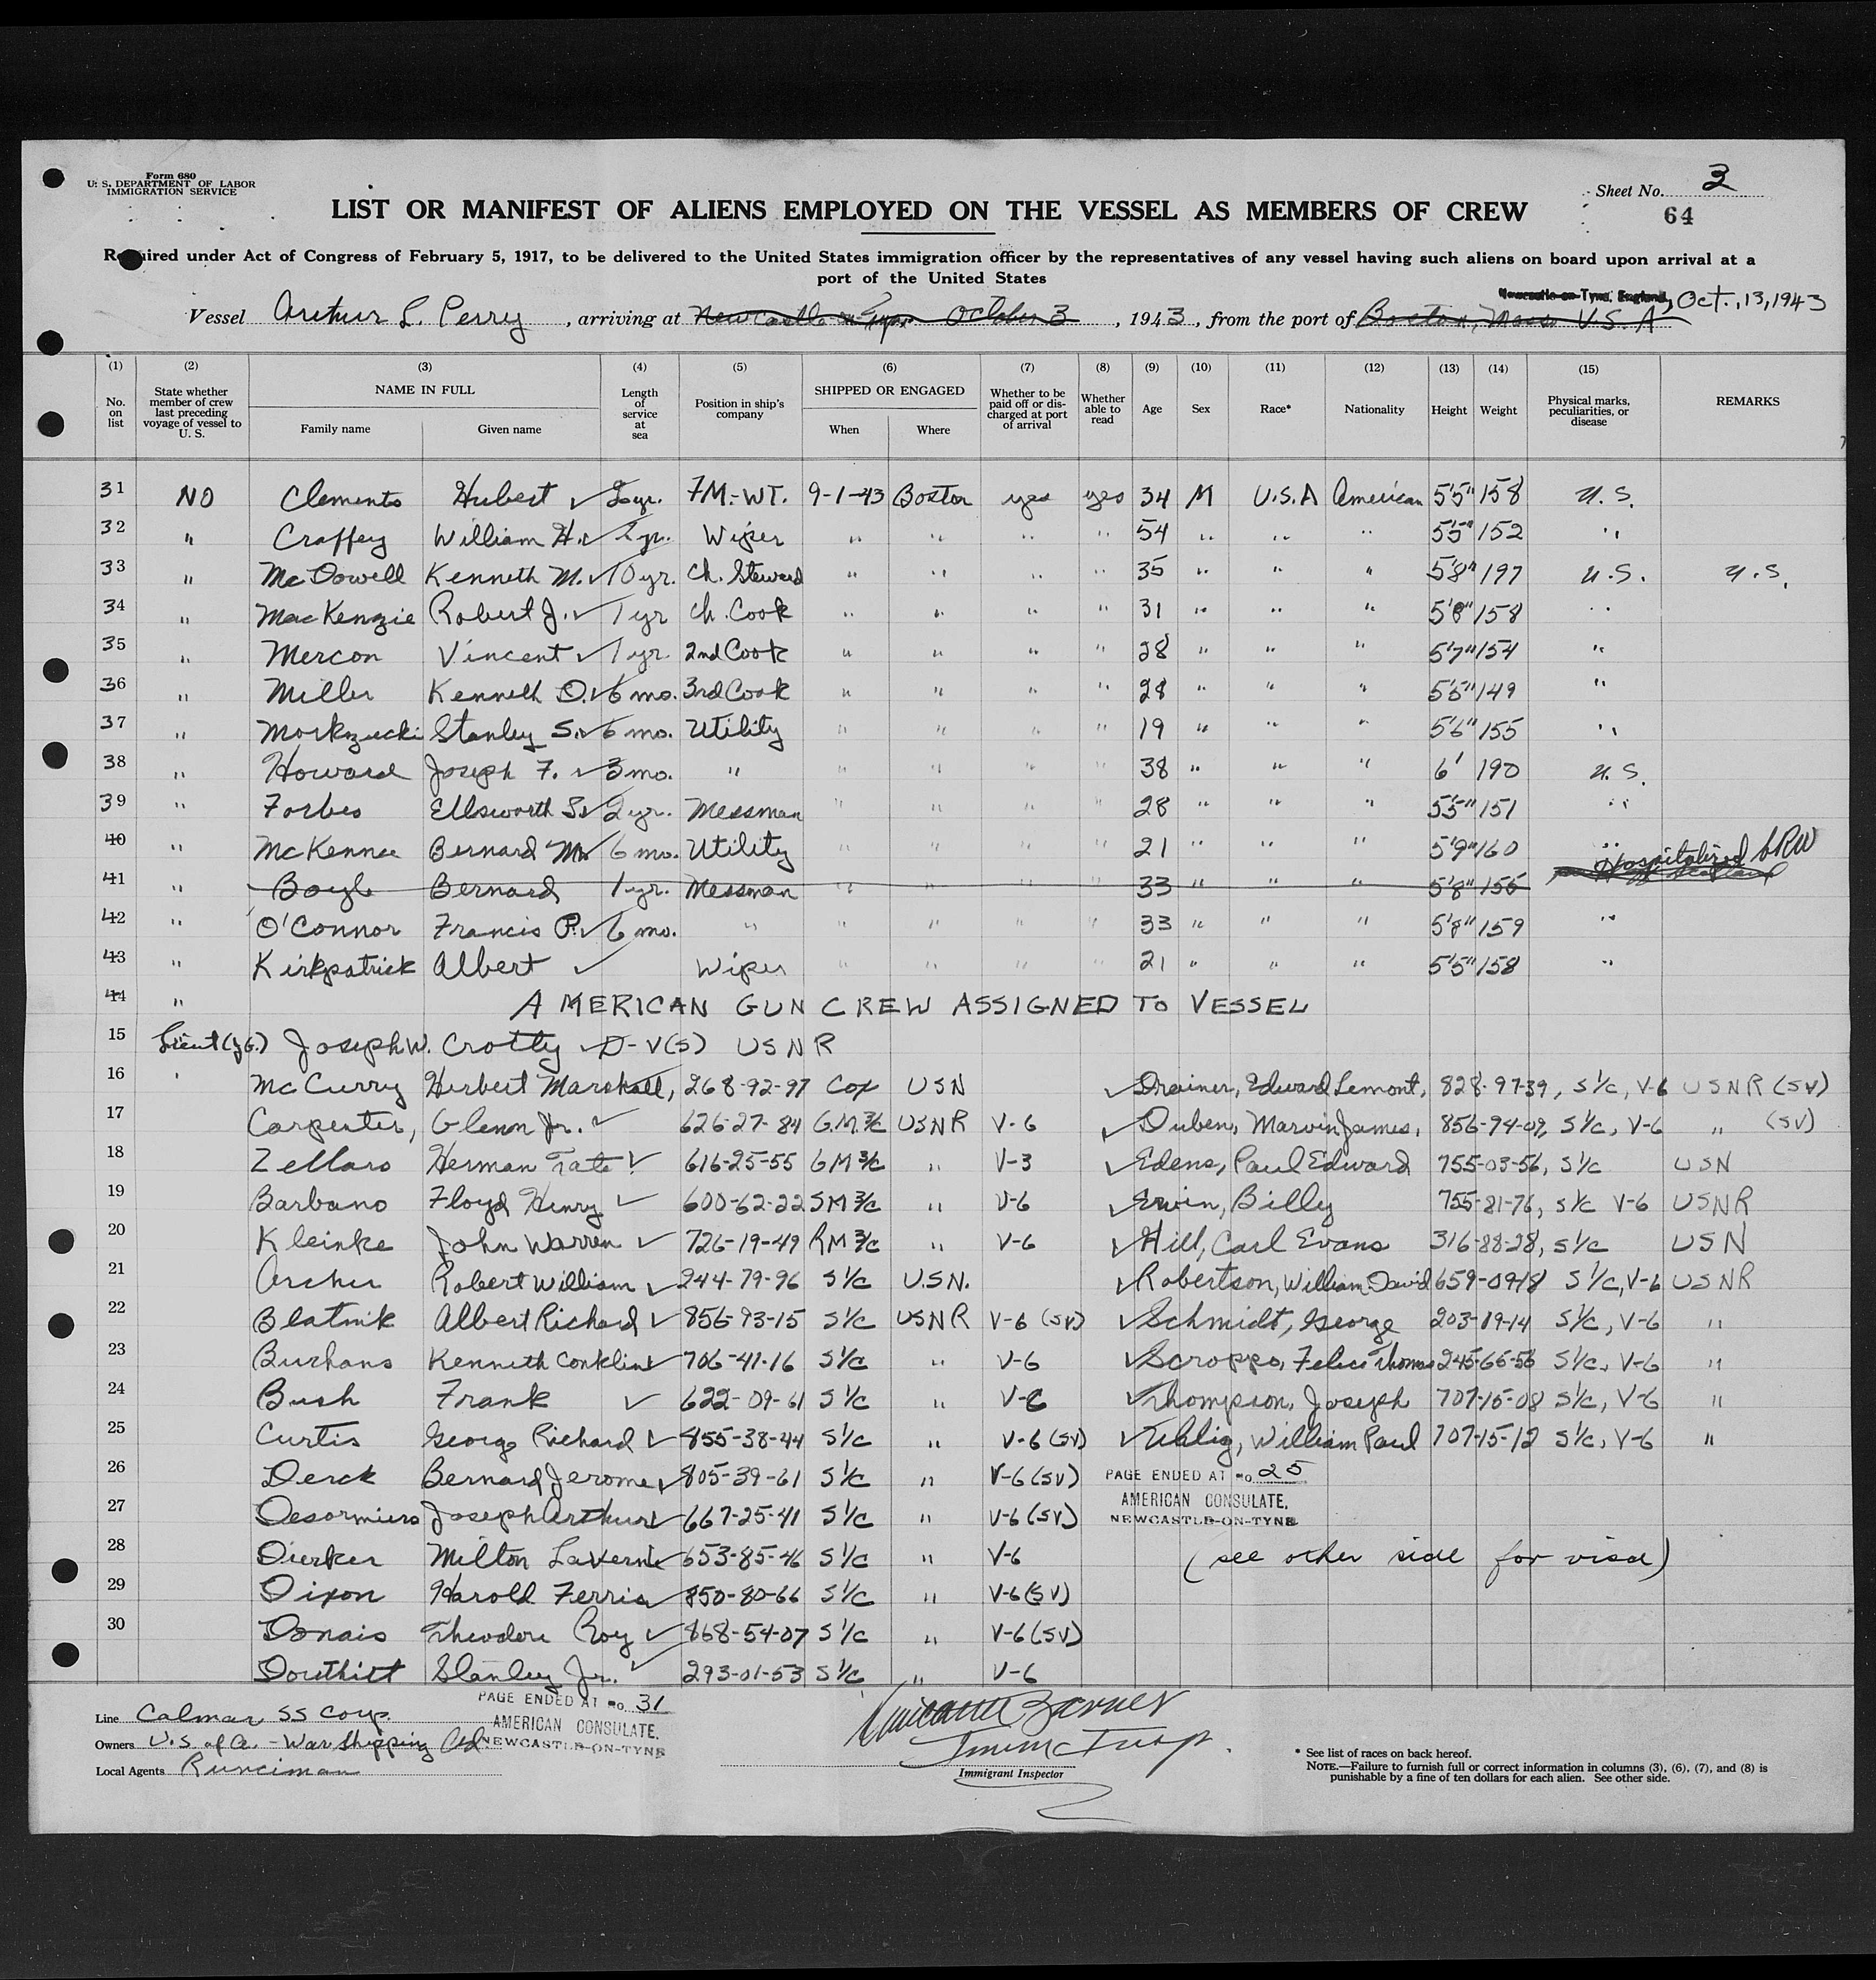 Form 680
U. S. DEPARTMENT OF LABOR
IMMIGRATION SERVICE
Sheet No. 3
64
LIST OR MANIFEST OF ALIENS EMPLOYED ON THE VESSEL AS MEMBERS OF CREW
Required under Act of Congress of February 5, 1917, to be delivered to the United States immigration officer by the representatives of any vessel having such aliens on board upon arrival at a
port of the United States
Newcastle-on-Tyne, England, Oct., 13, 1943
Vessel Arthur L. Perry, arriving at Newcastle on Tyne October 3, 1943, from the port of Boston, Mass U.S.A
(1) (2) (3) (4) (5) (6) (7) (8) (9) (10) (11) (12) (13) (14) (15)
No. on list
State whether member of crew last preceding voyage of vessel to U. S.
NAME IN FULL
Family name Given name
Length of service at sea
Position in ship's company
SHIPPED OR ENGAGED
When Where
Whether to be paid off or discharged at port of arrival
Whether able to read
Age Sex Race* Nationality Height Weight
Physical marks, peculiarities, or disease
REMARKS
31 NO Clements Hubert ✓ yr. FM.-WT. 9-1-43 Boston yes yes 34 M U.S.A American 5'5" 158 U.S.
32 " Craffey William H. ✓ yr. Wiper " " " " 54 " " " 5'5" 152 "
33 " McDowell Kenneth M. ✓ 10 yr. Ch. Steward " " " " 35 " " " 5'8" 197 U.S. U.S.
34 " MacKenzie Robert J. ✓ 1 yr Ch. Cook " " " " 31 " " " 5'8" 158 "
35 " Mercon Vincent ✓ 1 yr. 2nd Cook " " " " 28 " " " 5'7" 154 "
36 " Miller Kenneth O. ✓ 6 mo. 3rd Cook " " " " 28 " " " 5'5" 149 "
37 " Stanley S. ✓ 6 mo. Utility " " " " 19 " " " 5'6" 155 "
38 " Howard Joseph F. ✓ 3 mo. " " " " " 38 " " " 6' 190 U.S.
39 " Forbes Ellsworth S. ✓ 2 yr. Messman " " " " 28 " " " 5'5" 151 "
40 " McKenna Bernard M. ✓ 6 mo. Utility " " " " 21 " " " 5'9" 160 "
41 " Boyle Bernard 1 yr. Messman " " " " 33 " " " 5'8" 155 Hospitalized
42 " O'Connor Francis P. ✓ 6 mo. " " " " " 33 " " " 5'8" 159 "
43 " Kirkpatrick Albert ✓ Wiper " " " " 21 " " " 5'5" 158 "
44 " AMERICAN GUN CREW ASSIGNED TO VESSEL
15 Lieut (jG.) Joseph W. Crotty ✓ D-V(S) USNR
16 McCurry Herbert Marshall, 268-92-97 Cox USN ✓ Drainer, Edward Lemont, 828-97-39, S1/c, V-6 USNR (SV)
17 Carpenter, Glenn Jr. ✓ 626-27-84 G.M.3/c USNR V-6 ✓ Duben, Marvin James, 856-94-09, S1/c, V-6 " (SV)
18 Zellars Herman Tate ✓ 616-25-55 GM3/c " V-3 ✓ Edens, Paul Edward 755-03-56, S1/c USN
19 Barbano Floyd Henry ✓ 600-62-22 SM3/c " V-6 ✓ Erwin, Billy 755-81-76, S1/c V-6 USNR
20 Kleinke John Warren ✓ 726-19-49 RM3/c " V-6 ✓ Hill, Carl Evans 316-88-28, S1/c USN
21 Archer Robert William ✓ 244-79-96 S1/c U.S.N. ✓ Robertson, William David 659-09-18 S1/c, V-6 USNR
22 Blatnik Albert Richard ✓ 856-93-15 S1/c USNR V-6 (SV) ✓ Schmidt, George 203-19-14 S1/c, V-6 "
23 Burhans Kenneth Conklin ✓ 706-41-16 S1/c " V-6 ✓ Scroppo, Felice Thomas 245-66-56 S1/c, V-6 "
24 Bush Frank ✓ 622-09-61 S1/c " V-6 ✓ Thompson, Joseph 707-15-08 S1/c, V-6 "
25 Curtis George Richard ✓ 855-38-44 S1/c " V-6 (SV) ✓ Uhlig, William Paul 707-15-12 S1/c, V-6 "
26 Derck Bernard Jerome ✓ 805-39-61 S1/c " V-6 (SV) PAGE ENDED AT No. 25
27 Desormiers Joseph Arthur ✓ 667-25-41 S1/c " V-6 (SV) AMERICAN CONSULATE, NEWCASTLE-ON-TYNE
28 Dierker Milton LaVerne ✓ 653-85-46 S1/c " V-6 (see other side for visa)
29 Dixon Harold Ferris ✓ 850-80-66 S1/c " V-6 (SV)
30 Donais Theodore Roy ✓ 868-54-07 S1/c " V-6 (SV)
Douthitt Stanley Jr. ✓ 293-01-53 S1/c " V-6
PAGE ENDED AT No. 31
AMERICAN CONSULATE,
NEWCASTLE-ON-TYNE
Line Calmar SS Corp.
Owners U.S. of A. - War Shipping Ad
Local Agents Runciman
Immigrant Inspector
* See list of races on back hereof.
NOTE.—Failure to furnish full or correct information in columns (3), (6), (7), and (8) is
punishable by a fine of ten dollars for each alien. See other side.